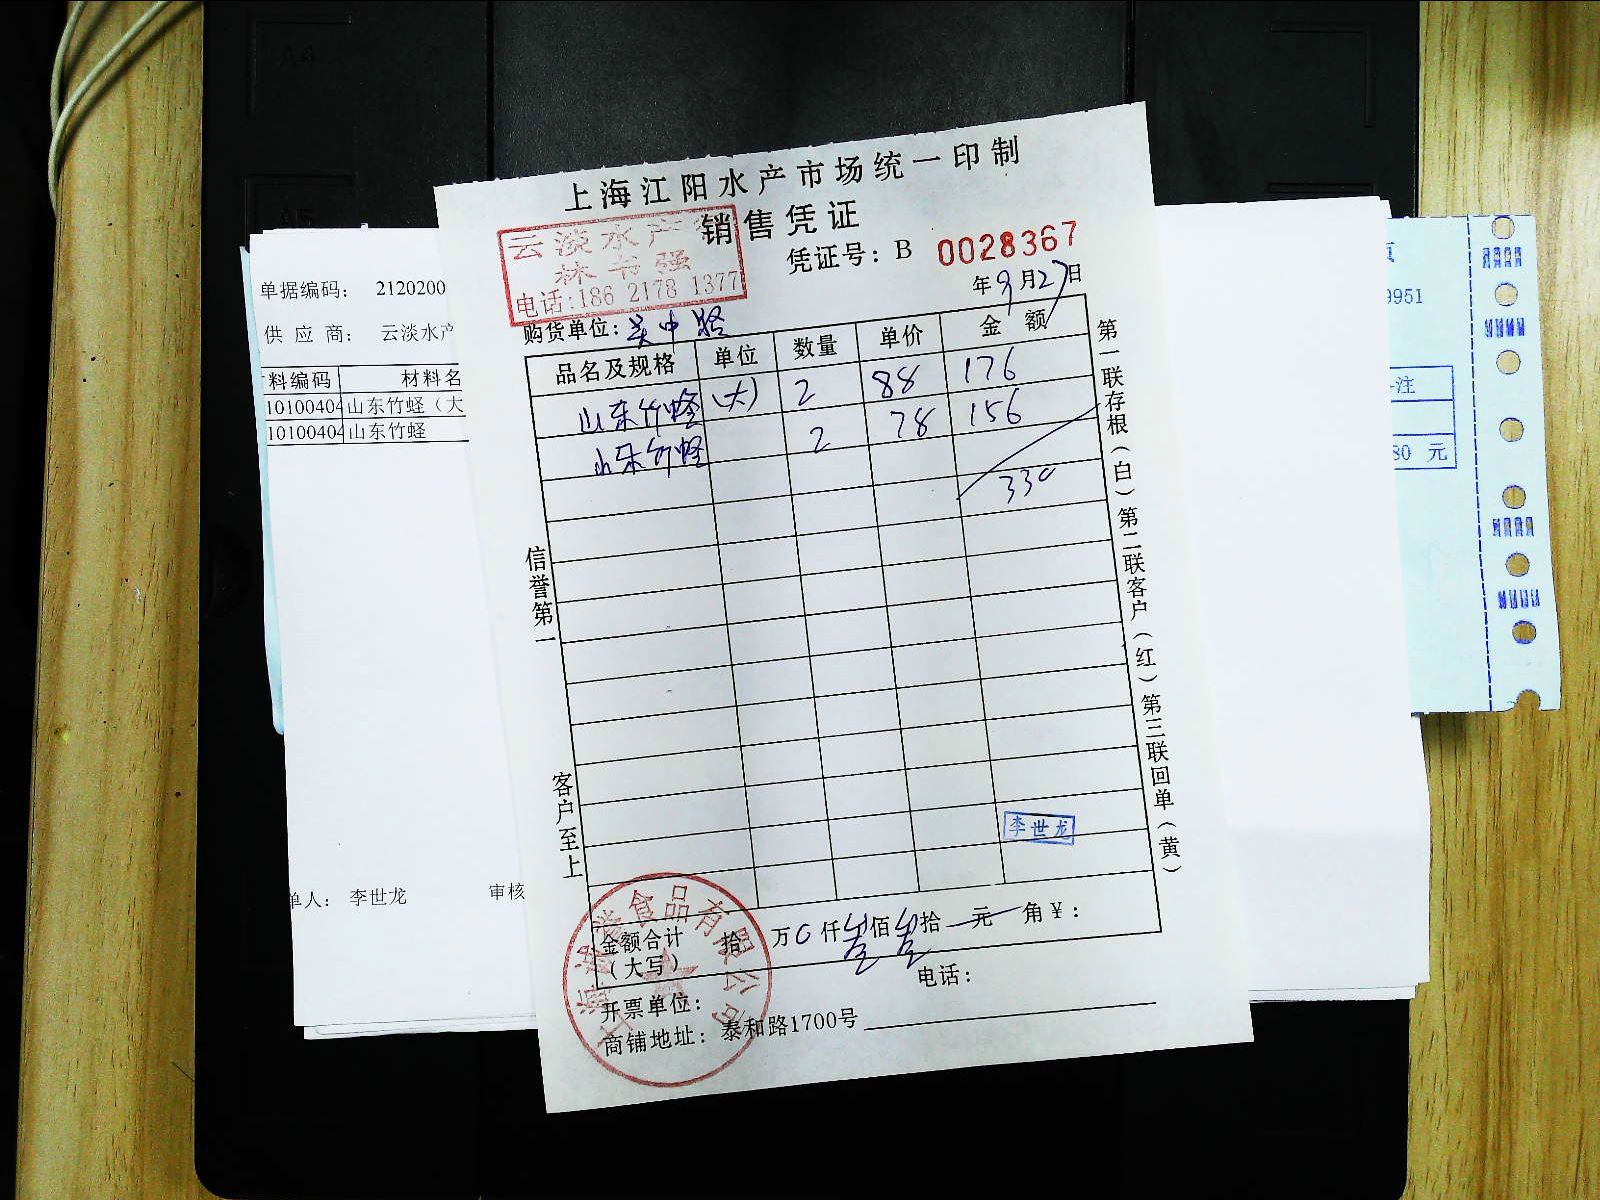 上海江阳水产市场统一印制
销售凭证
云淡水产
林书强
电话:186 2178 1377
凭证号: B 0028367
年9月27日
购货单位: 吴中路
品名及规格 单位 数量 单价 金额
山东竹蛏(大) 2 88 176
山东竹蛏 2 78 156
330
信誉第一
客户至上
第一联存根(白)第二联客户(红)第三联回单(黄)
李世龙
金额合计(大写) 拾 万 0 仟 叁 佰 叁 拾 元 角 ¥:
食品有限公司
开票单位:
电话:
商铺地址: 泰和路1700号
单据编码: 2120200
供应商: 云淡水产
料编码 材料名
10100404 山东竹蛏(大
10100404 山东竹蛏
单人: 李世龙 审核
9951
注
80 元
A4
A5